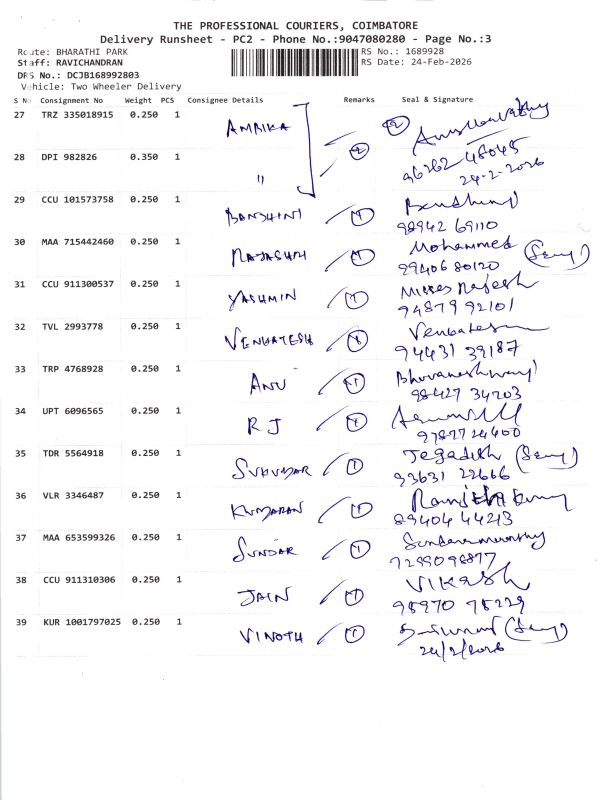 THE PROFESSIONAL COURIERS, COIMBATORE
Delivery Runsheet - PC2 - Phone No.:9047080280 - Page No.:3
Route: BHARATHI PARK RS No.: 1689928
Staff: RAVICHANDRAN RS Date: 24-Feb-2026
DRS No.: DCJB168992803
Vehicle: Two Wheeler Delivery
S No Consignment No Weight PCS Consignee Details Remarks Seal & Signature
27 TRZ 335018915 0.250 1 AMBIKA 2
96262 48045
28 DPI 982826 0.350 1 " 2 24-2-2026
29 CCU 101573758 0.250 1 BANSHINI 1
98942 69110
30 MAA 715442460 0.250 1 RAJASHRI 1 Mohammed
99406 80120
31 CCU 911300537 0.250 1 YASHMIN 1 Rajesh
94879 92101
32 TVL 2993778 0.250 1 VENKATESH 1 Venkatesh
94431 39187
33 TRP 4768928 0.250 1 ANU 1 Bhuvaneshwari
98427 34203
34 UPT 6096565 0.250 1 RJ 1
97877 24400
35 TDR 5564918 0.250 1 SUKUMAR 1 Jegadish
93631 22666
36 VLR 3346487 0.250 1 KUMARAN 1
89404 44213
37 MAA 653599326 0.250 1 SUNDAR 1 Sundaramoorthy
7299098877
38 CCU 911310306 0.250 1 JAIN 1 VIKASH
98970 78229
39 KUR 1001797025 0.250 1 VINOTH 1
24/2/2026